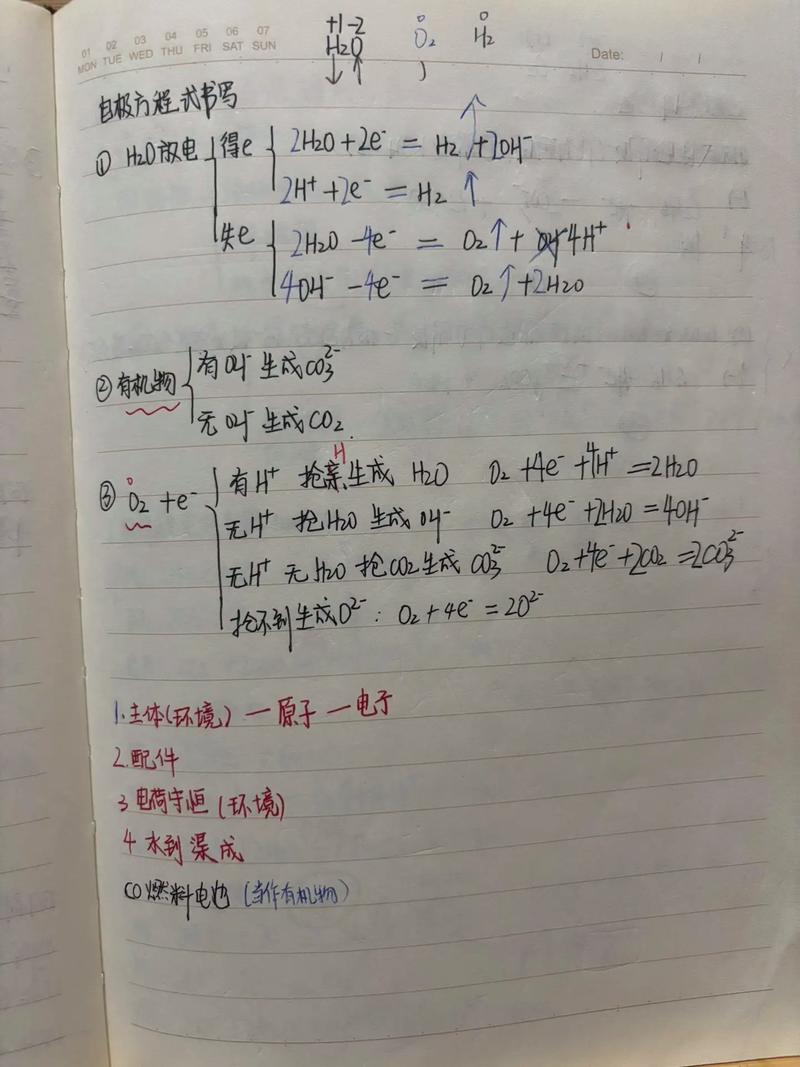 01 02 03 04 05 06 07
MON TUE WED THU FRI SAT SUN
Date: / /
+1 -2 0 0
H2O O2 H2
↓ ↑
自极方程式书写
① H2O放电 得e 2H2O + 2e- = H2↑ + 2OH-
2H+ + 2e- = H2↑
失e 2H2O - 4e- = O2↑ + 4H+
4OH- - 4e- = O2↑ + 2H2O
② 有机物 有OH- 生成CO3^2-
无OH- 生成CO2.
0 H
③ O2 + e- 有H+ 抢亲生成 H2O O2 + 4e- + 4H+ = 2H2O
无H+ 抢H2O 生成OH- O2 + 4e- + 2H2O = 4OH-
无H+ 无H2O 抢CO2生成 CO3^2- O2 + 4e- + 2CO2 = 2CO3^2-
抢不到生成O^2-: O2 + 4e- = 2O^2-
1.主体(环境) — 原子 — 电子
2.配件
3 电荷守恒 (环境)
4 水到渠成
CO燃料电池 (当作有机物)